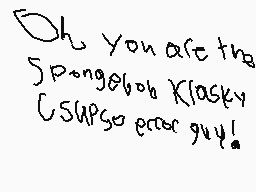 Oh you are the
Spongebob Klasky
Csupso error guy!